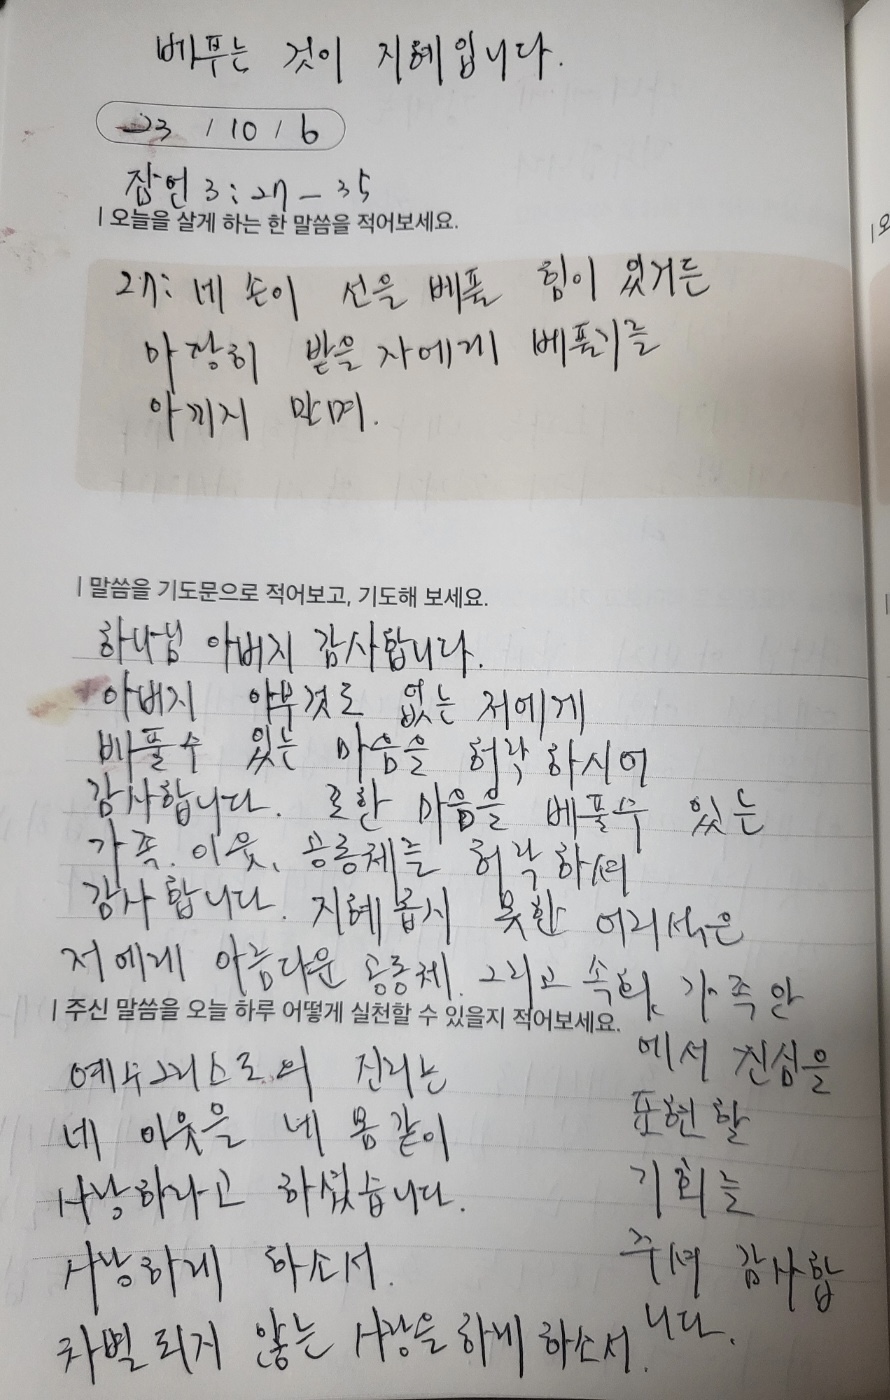 베푸는 것이 지혜입니다.
23 / 10 / 6
잠언 3:27-35
| 오늘을 살게 하는 한 말씀을 적어보세요.
27: 네 손이 선을 베풀 힘이 있거든
마땅히 받을 자에게 베풀기를
아끼지 말며.
| 말씀을 기도문으로 적어보고, 기도해 보세요.
하나님 아버지 감사합니다.
아버지 아무것도 없는 저에게
베풀수 있는 마음을 허락하시어
감사합니다. 또한 마음을 베풀수 있는
가족, 이웃, 공동체를 허락하셔
감사합니다. 지혜롭지 못한 어리석은
저에게 아름다운 공동체, 그리고 속회, 가족 안
에서 진심을
표현할
기회를
주셔 감사합
니다.
| 주신 말씀을 오늘 하루 어떻게 실천할 수 있을지 적어보세요.
예수그리스도의 진리는
네 이웃을 네 몸같이
사랑하라고 하셨습니다.
사랑하게 하소서.
차별 되지 않는 사랑을 하게 하소서.